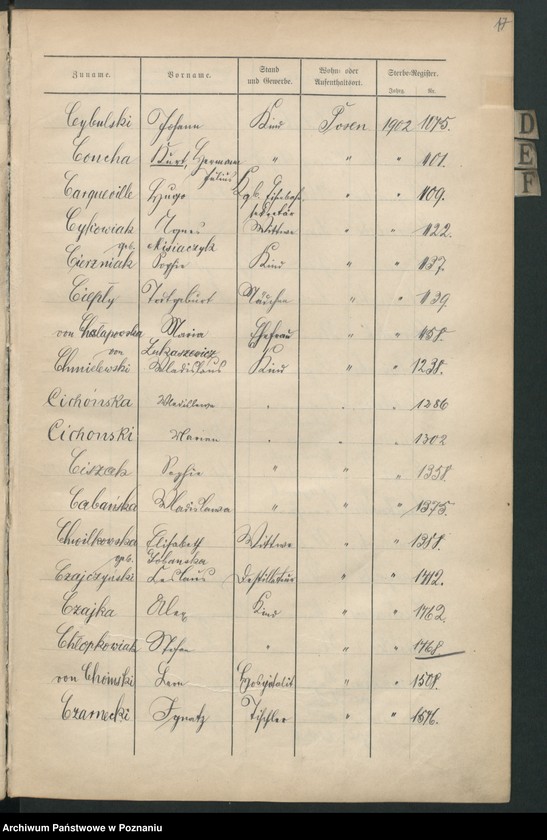 17
Zuname. Vorname. Stand und Gewerbe. Wohn- oder Aufenthaltsort. Sterbe-Register.
Jahrg. Nr.
Cybulski Johann Kind Posen 1902 1075.
Concha Kurt, Hermann Julius " " " 1101.
Carqueville Hugo Kgl. Eisenbahn sekretär " " 1109.
Cykowiak Agnes Wittwe " " 1122.
geb. Misiaczyk
Cierzniak Sophie Kind " " 1137.
Ciepły Totgeburt Mädchen " " 1139
von Chslapowska Maria Ehefrau " " 1158.
von Lukaszewicz
Chmielewski Wladislaus Kind " " 1238.
Cichońska " " " 1286
Cichonski Marian " " " 1302
Ciszak Sophie " " " 1358.
Cabańska Wladislawa " " " 1375.
Chwilkowska Elisabeth Wittwe " " 1388.
geb. Lobanska
Czajczynski Ceslaus Destillateur " " 1412.
Czajka Alex Kind " " 1762.
Chłopkowiak Stefan " " " 1768.
von Choinski Leon Hospitalit " " 1508.
Czarnecki Ignatz Tischler " " 1576.
D
E
F
Archiwum Państwowe w Poznaniu